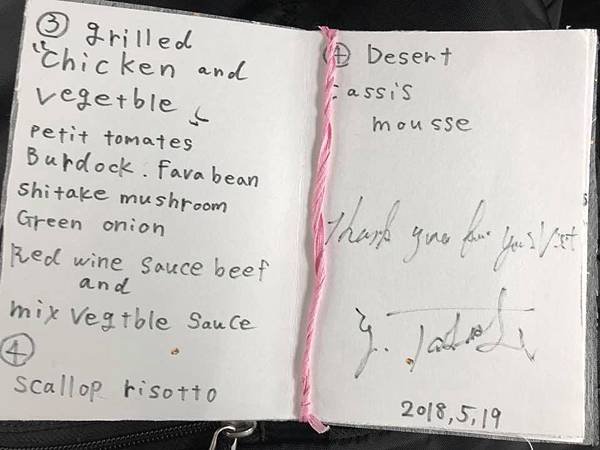 ③ grilled
chicken and
vegetble
petit tomates
Burdock. fava bean
shitake mushroom
Green onion
Red wine sauce beef
and
mix vegtble sauce
④
scallop risotto
Desert
assis
mousse
Thank you for your visit
2018,5,19